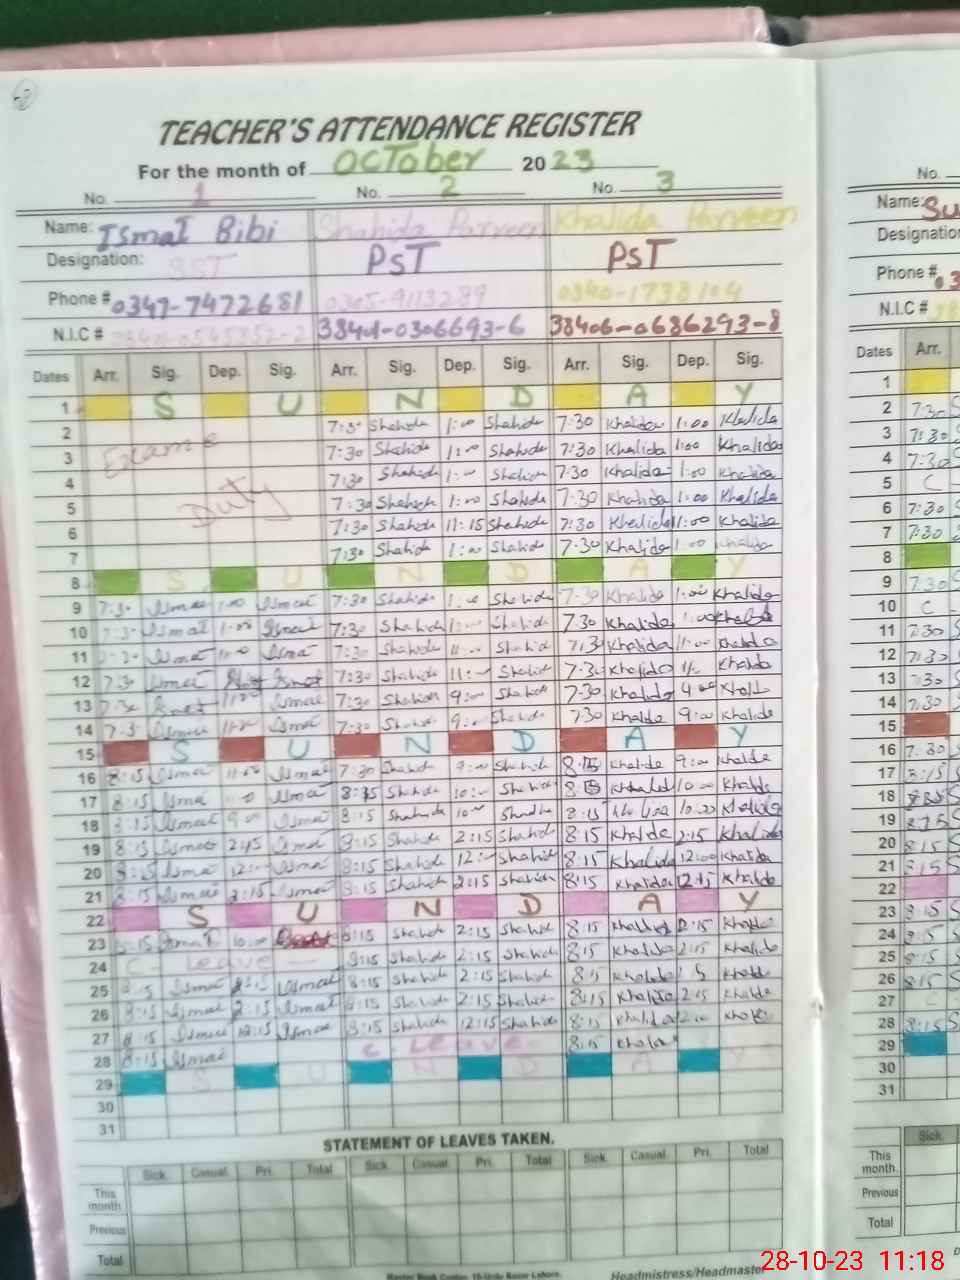 TEACHER'S ATTENDANCE REGISTER
For the month of October 2023
No. 1 No. 2 No. 3 No.
Name: Ismat Bibi Shahida Parveen Khalida Parveen Name: Su
Designation: SST PST PST Designation
Phone # 0347-7472681 0305-9113289 0340-1738104 Phone # 03
N.I.C # 38401-0306693-6 38406-0686293-8 N.I.C #
Dates Arr. Sig. Dep. Sig. Arr. Sig. Dep. Sig. Arr. Sig. Dep. Sig. Dates Arr.
1 S U N D A Y 1
2 7:30 Shahida 1:00 Shahida 7:30 Khalida 1:00 Khalida 2 7:30
3 Exame 7:30 Shahida 1:00 Shahida 7:30 Khalida 1:00 Khalida 3 7:30
4 7:30 Shahida 1:00 Shahida 7:30 Khalida 1:00 Khalida 4 7:30
5 Duty 7:30 Shahida 1:00 Shahida 7:30 Khalida 1:00 Khalida 5 C
6 7:30 Shahida 11:15 Shahida 7:30 Khalida 11:00 Khalida 6 7:30
7 7:30 Shahida 1:00 Shahida 7:30 Khalida 1:00 Khalida 7 7:30
8 S U N D A Y 8
9 7:30 Ismat 1:00 Ismat 7:30 Shahida 1:00 Shahida 7:30 Khalida 1:00 Khalida 9 7:30
10 7:30 Ismat 1:00 Ismat 7:30 Shahida 1:00 Shahida 7:30 Khalida 1:00 Khalida 10 C
11 7:30 Ismat 11:00 Ismat 7:30 Shahida 11:00 Shahida 7:30 Khalida 11:00 Khalida 11 7:30
12 7:30 Ismat Ismat 7:30 Shahida 11:00 Shahida 7:30 Khalida Khalida 12 7:30
13 7:30 Ismat Ismat 7:30 Shahida 9:00 Shahida 7:30 Khalida Khalida 13 7:30
14 7:30 Ismat Ismat 7:30 Shahida 9:00 Shahida 7:30 Khalida 9:00 Khalida 14 7:30
15 S U N D A Y 15
16 8:15 Ismat 11:00 Ismat 7:30 Shahida 9:00 Shahida 8:15 Khalida 9:00 Khalida 16 7:30
17 8:15 Ismat Ismat 8:15 Shahida 10:00 Shahida 8:15 Khalida 10:00 Khalida 17 8:15
18 8:15 Ismat 9:00 Ismat 8:15 Shahida 10:00 Shahida 8:15 Khalida 10:00 Khalida 18
19 8:15 Ismat 2:45 Ismat 8:15 Shahida 2:15 Shahida 8:15 Khalida 2:15 Khalida 19 8:15
20 8:15 Ismat 12:00 Ismat 8:15 Shahida 12:00 Shahida 8:15 Khalida 12:00 Khalida 20 8:15
21 8:15 Ismat 2:15 Ismat 8:15 Shahida 2:15 Shahida 8:15 Khalida Khalida 21 8:15
22 S U N D A Y 22
23 8:15 Ismat 10:00 8:15 Shahida 2:15 Shahida 8:15 Khalida 2:15 Khalida 23 8:15
24 C - Leave - 8:15 Shahida 2:15 Shahida 8:15 Khalida 2:15 Khalida 24 8:15
25 8:15 Ismat Ismat 8:15 Shahida 2:15 Shahida 8:15 Khalida Khalida 25 8:15
26 8:15 Ismat 2:15 Ismat 8:15 Shahida 2:15 Shahida 8:15 Khalida 2:15 Khalida 26 8:15
27 8:15 Ismat 12:15 Ismat 8:15 Shahida 12:15 Shahida 8:15 Khalida Khalida 27 C
28 8:15 Ismat C. Leave 8:15 Khalida 28 8:15
29 S U N D A Y 29
30 30
31 31
STATEMENT OF LEAVES TAKEN.
Sick. Casual. Pri. Total Sick. Casual. Pri. Total Sick. Casual. Pri. Total Sick.
This month This month.
Previous Previous
Total Total
Headmistress/Headmaster
28-10-23 11:18